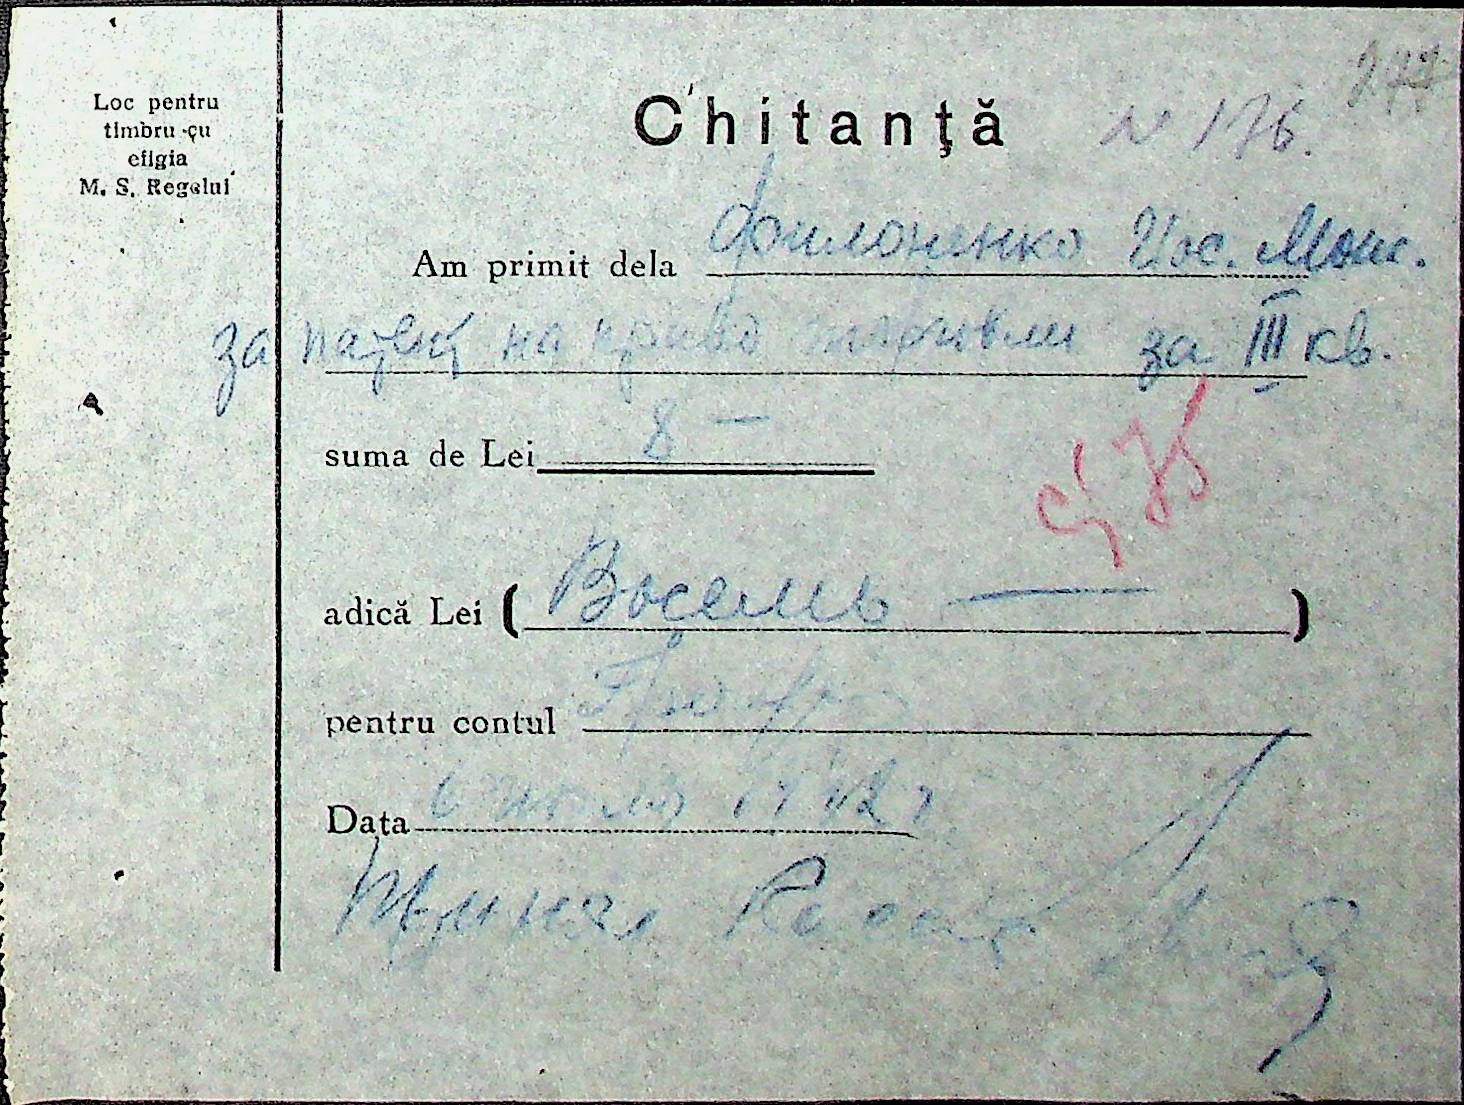 Loc pentru
timbru cu
efigia
M. S. Regelui
277
Chitanţă N 176.
Am primit dela Филоненко Иос. Моис.
за патент на право торговли за III кв.
suma de Lei 8 —
adică Lei ( Восемь — )
pentru contul
Data 6 июля 1942 г.
Принял Кассир